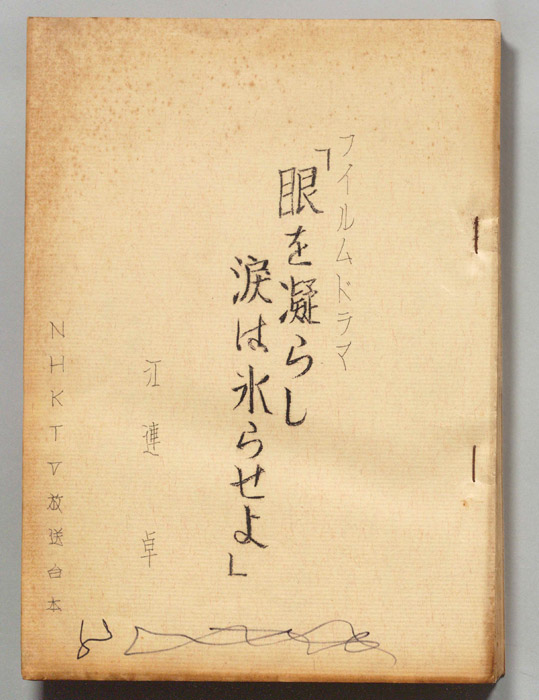 フイルムドラマ
「眼を凝らし
涙は氷らせよ」
江連卓
NHKTV放送台本